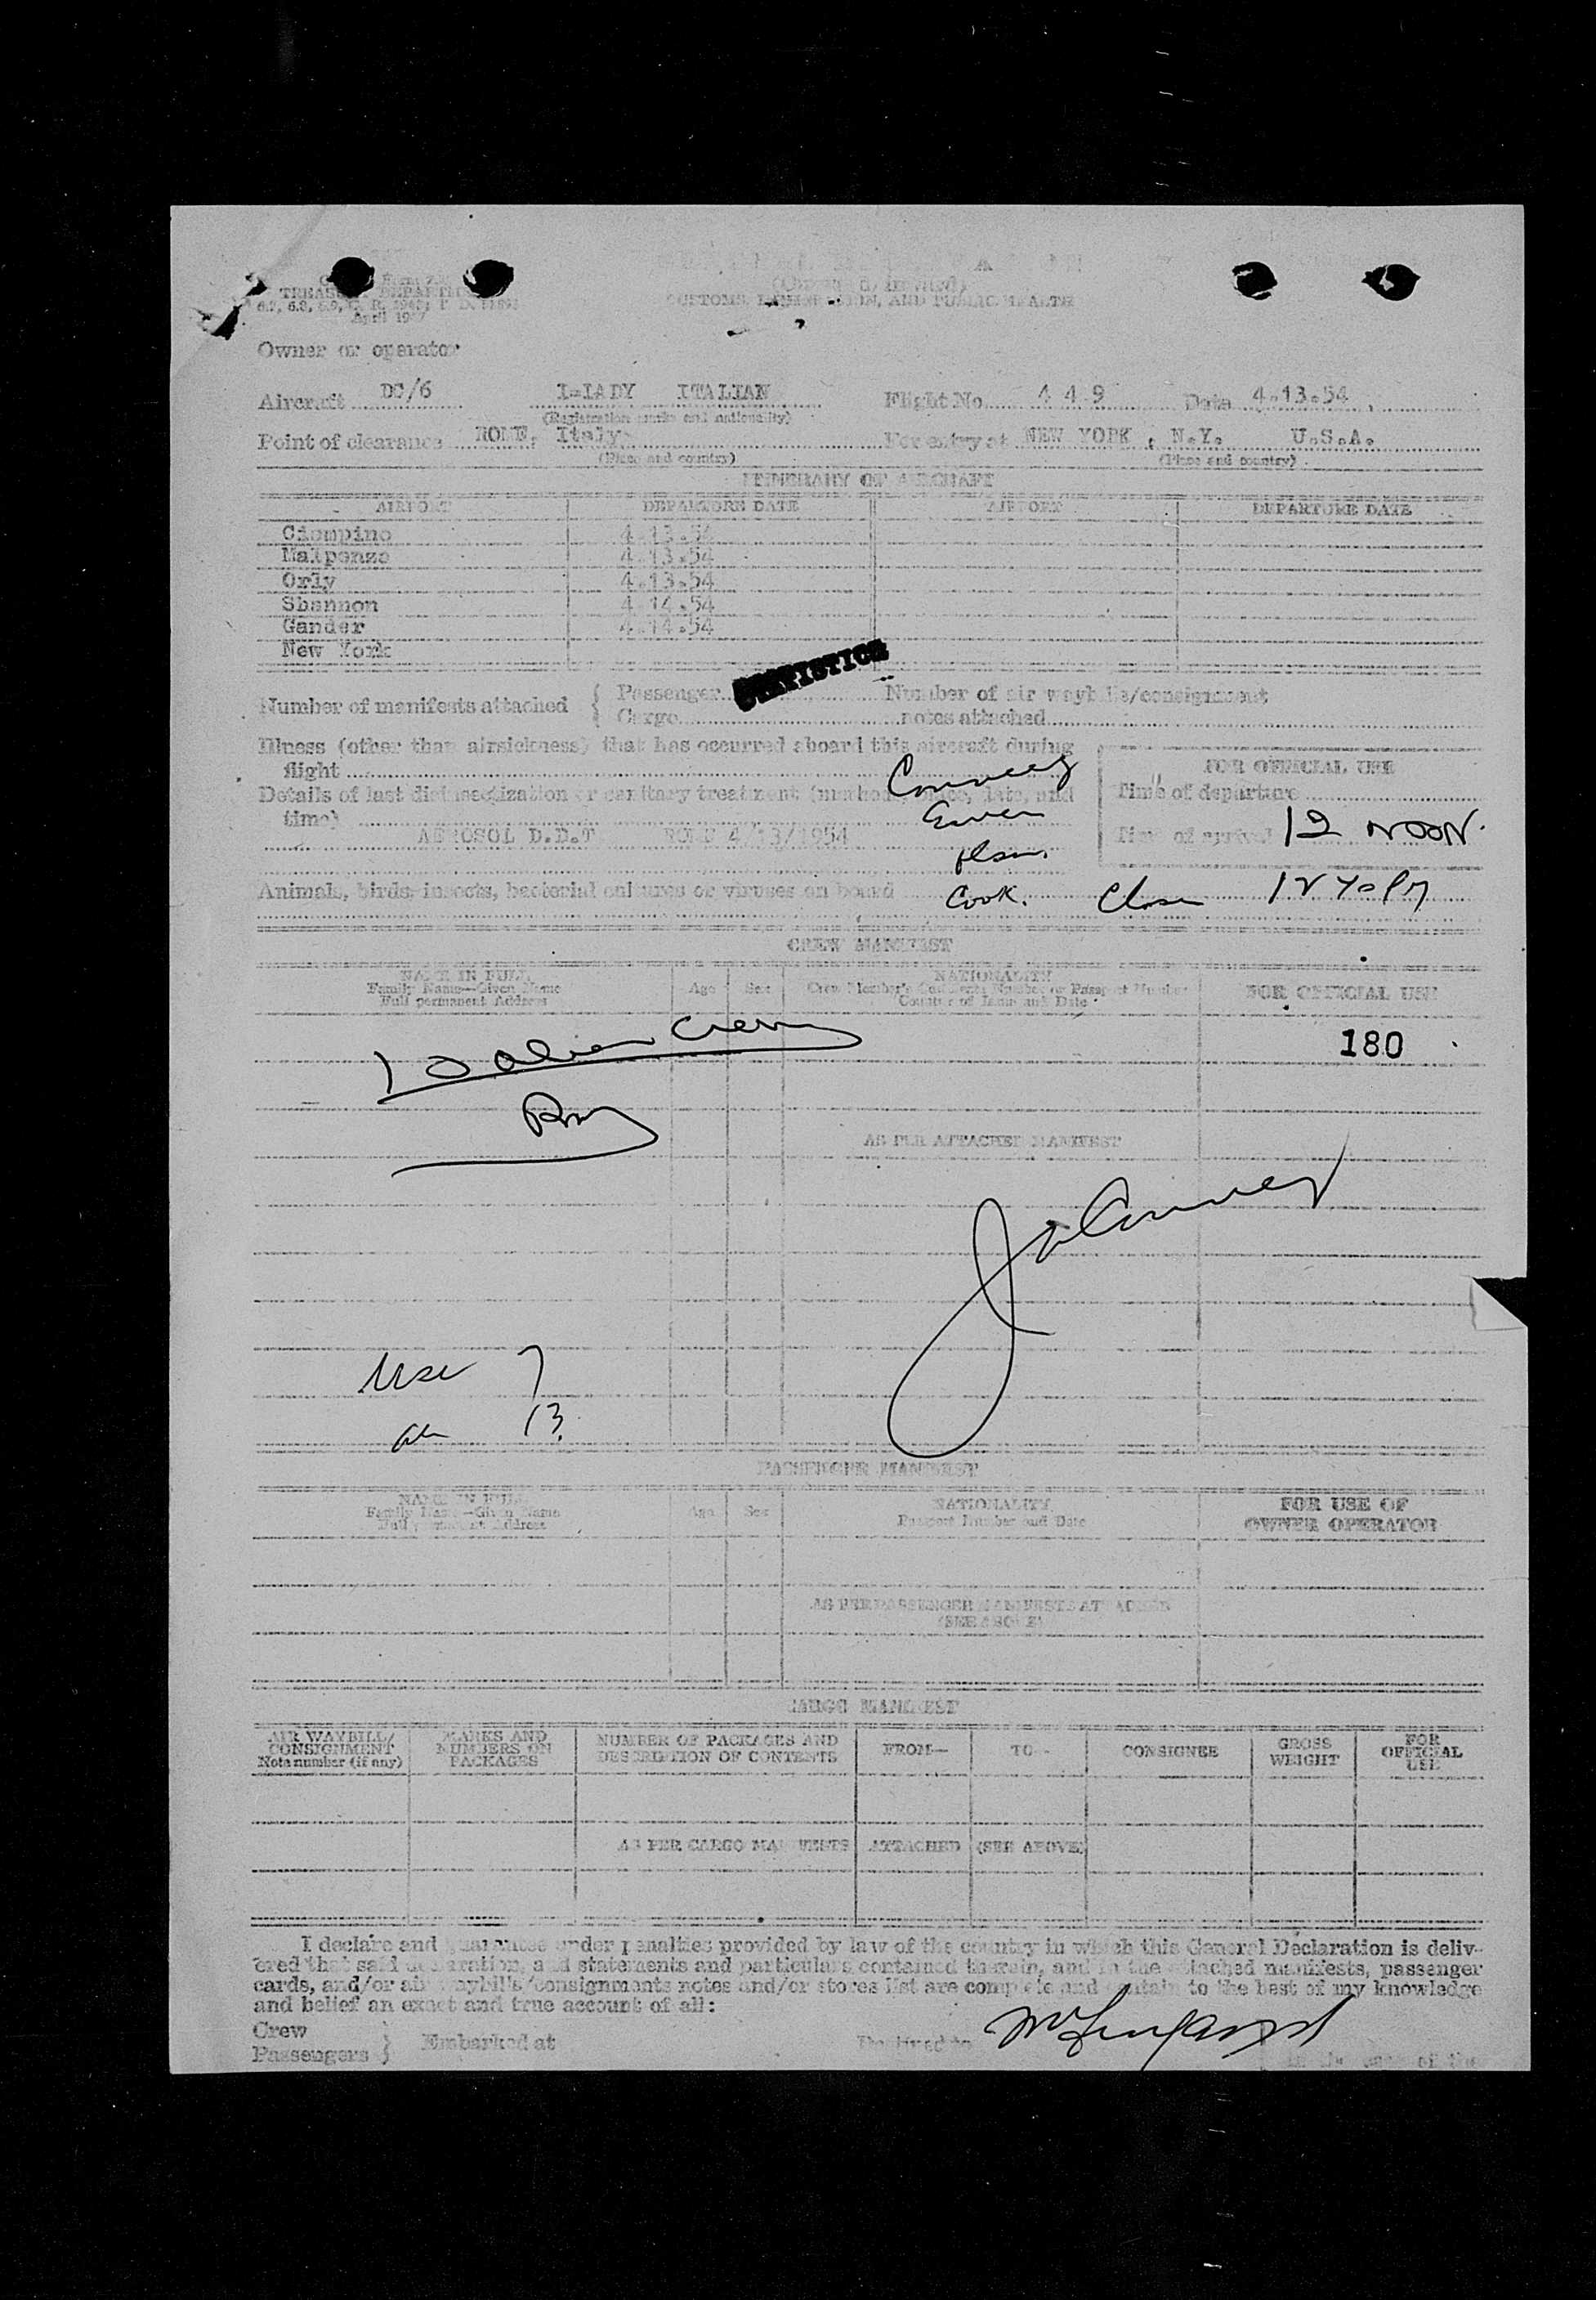 TREASURY DEPARTMENT
April 1947
CUSTOMS, IMMIGRATION, AND PUBLIC HEALTH
Owner or operator
Aircraft DC/6 I-LADY ITALIAN Flight No. 4 4 9 Date 4.13.54
(Registration marks and nationality)
Point of clearance ROME, Italy For entry at NEW YORK , N.Y. U.S.A.
(Place and country) (Place and country)
ITINERARY OF AIRCRAFT
AIRPORT DEPARTURE DATE AIRPORT DEPARTURE DATE
Ciampino 4.13.54
Malpensa 4.13.54
Orly 4.13.54
Shannon 4.14.54
Gander 4.14.54
New York
STATISTICS
Number of manifests attached { Passenger Number of air waybills/consignment
Cargo notes attached
Illness (other than airsickness) that has occurred aboard this aircraft during
flight
FOR OFFICIAL USE
Details of last disinsectization or sanitary treatment (method, place, date, and
time)
Time of departure
AEROSOL D.D.T ROME 4/13/1954
Time of arrival 12 NOON.
Animals, birds, insects, bacterial cultures or viruses on board Cook.
CREW MANIFEST
NAME IN FULL
Family Name—Given Name
Full permanent Address
Age Sex
NATIONALITY
FOR OFFICIAL USE
Crew
180
AS PER ATTACHED MANIFEST
7
13
PASSENGER MANIFEST
NAME IN FULL
Family Name—Given Name
Full permanent Address
Age Sex
NATIONALITY
Passport Number and Date
FOR USE OF
OWNER OPERATOR
AS PER PASSENGER MANIFESTS ATTACHED
(SEE ABOVE)
CARGO MANIFEST
AIR WAYBILL/
CONSIGNMENT
Note number (if any)
MARKS AND
NUMBERS ON
PACKAGES
NUMBER OF PACKAGES AND
DESCRIPTION OF CONTENTS
FROM— TO— CONSIGNEE
GROSS
WEIGHT
FOR
OFFICIAL
USE
AS PER CARGO MANIFESTS ATTACHED (SEE ABOVE)
I declare and guarantee under penalties provided by law of the country in which this General Declaration is deliv-
ered that said declaration, and statements and particulars contained therein, and in the attached manifests, passenger
cards, and/or air waybills/consignments notes and/or stores list are complete and contain to the best of my knowledge
and belief an exact and true account of all:
Crew
Passengers } Embarked at Destined to